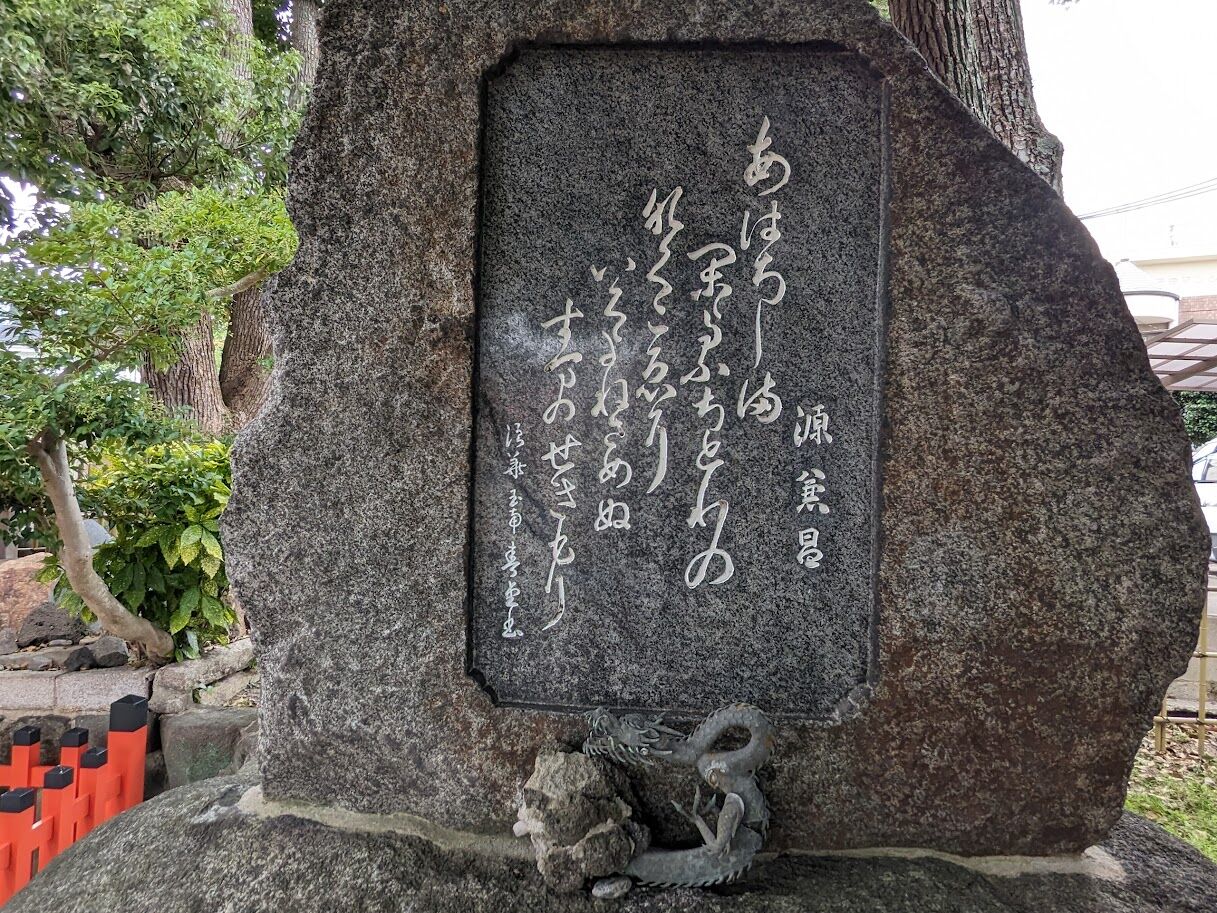 源兼昌
あはちしま
かよふちとりの
なくこゑに
いくよねさめぬ
すまのせきもり